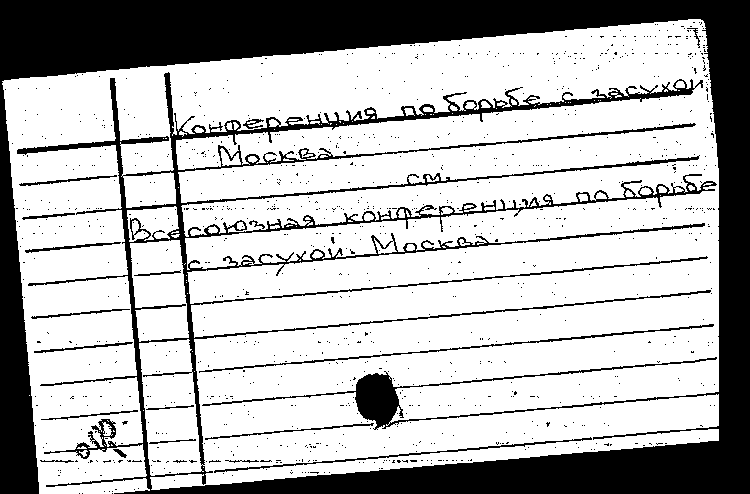 Конференция по борьбе с засухой
Москва.
см.
Всесоюзная конференция по борьбе
с засухой. Москва.